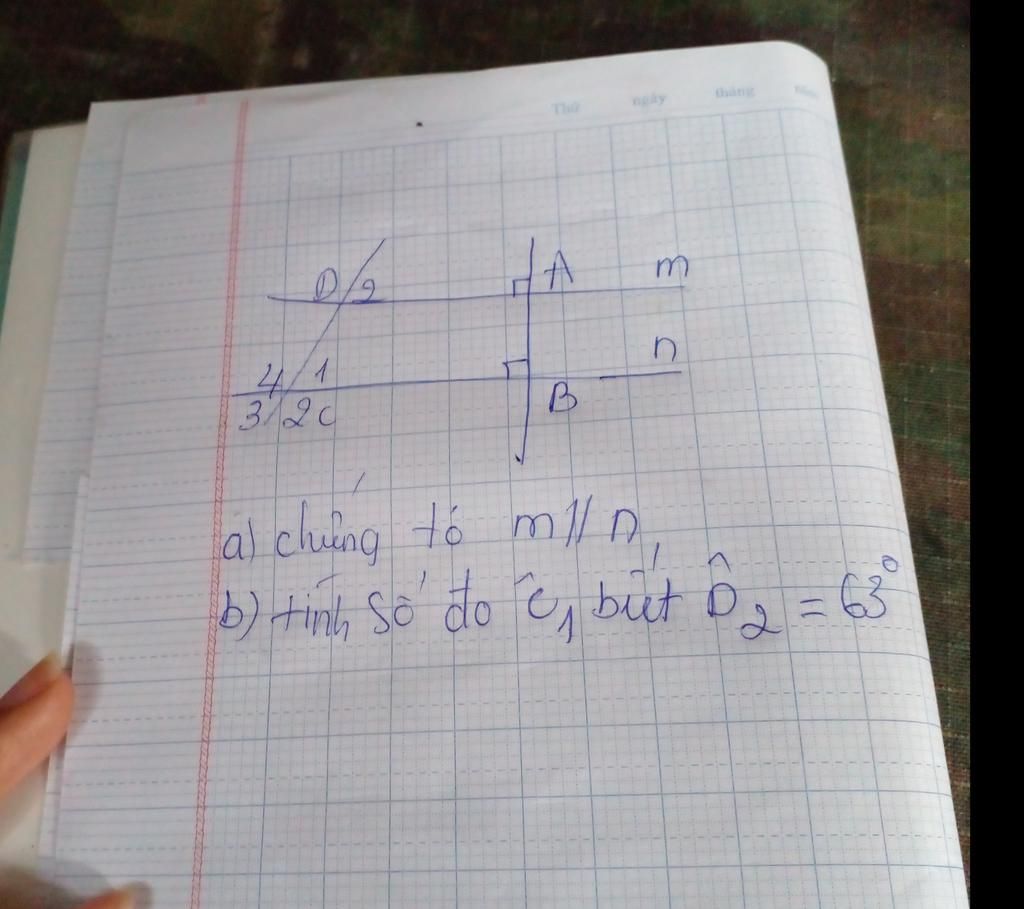 Thứ ngày tháng năm
D 2 A m
4 1 n
3 2 C B
a) chứng tỏ m // n
b) tính số đo Ĉ₁ biết D̂₂ = 63°